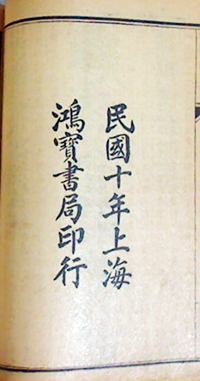 民國十年上海
鴻寶書局印行